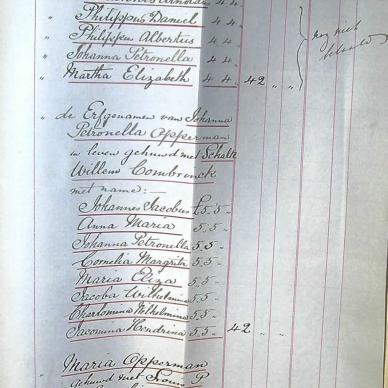 Philippus Daniel 4 4
" Philippus Albertus 4 4
" Johanna Petronella 4 4
" Martha Elizabeth 4 4 42 " "
nog niet
betaald
" de Erfgenamen van Johanna
Petronella Opperman
in leven gehuwd met Schalk
Willem Combrinck
met name:—
Johannes Jacobus £5.5-
Anna Maria 5.5-
Johanna Petronella 5.5-
Cornelia Margrita 5.5-
Maria Eliza 5.5-
Jacoba Wilhelmina 5.5-
Charlomina Wilhelmina 5.5-
Jacomina Hendrina 5.5- 42 " "
" Maria Opperman
gehuwd met Louis P